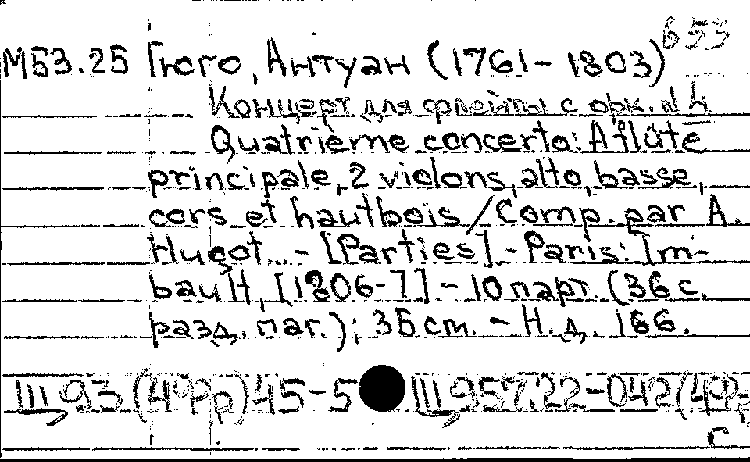 653
М53.25 Гюго, Антуан (1761-1803)
Концерт для флейты с орк. N 4
Quatrième concerto: A flûte
principale, 2 violons, alto, basse,
cors et hautbois / Comp. par A.
Hugot. - [Parties] - Paris: Im-
bault, [1806-7] - 10 парт. (36 с.
разд. паг.); 35 cm. - Н.д. 166.
Ш, 93 (4Фр) 45-5 Ш, 957.22-042 (4Фр